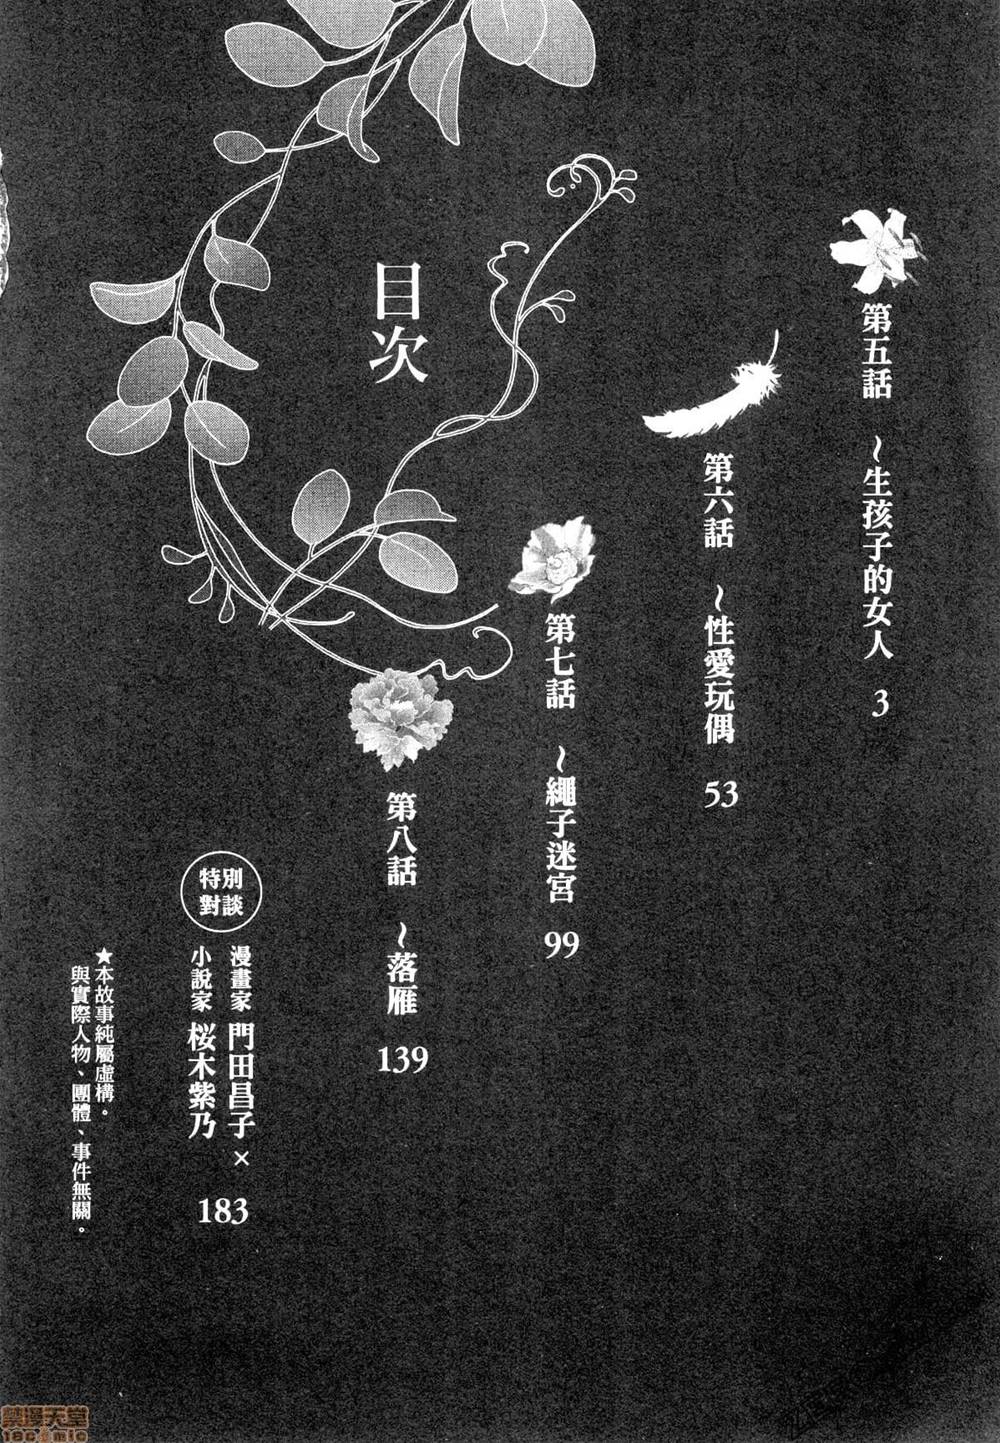 目次
第五話 ~生孩子的女人 3
第六話 ~性愛玩偶 53
第七話 ~繩子迷宮 99
第八話 ~落雁 139
特別
對談
漫畫家 門田昌子×
小說家 桜木紫乃
183
★本故事純屬虛構。
與實際人物、團體、事件無關。
禁漫天堂
18comic